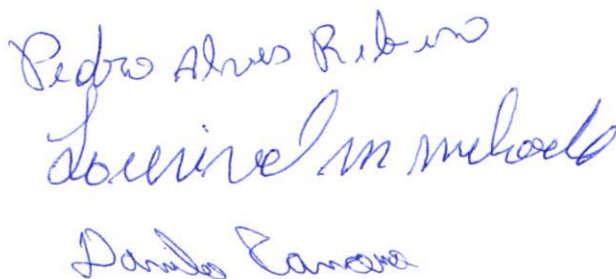 Pedro Alves Ribeiro
Lourival m machado
Danilo